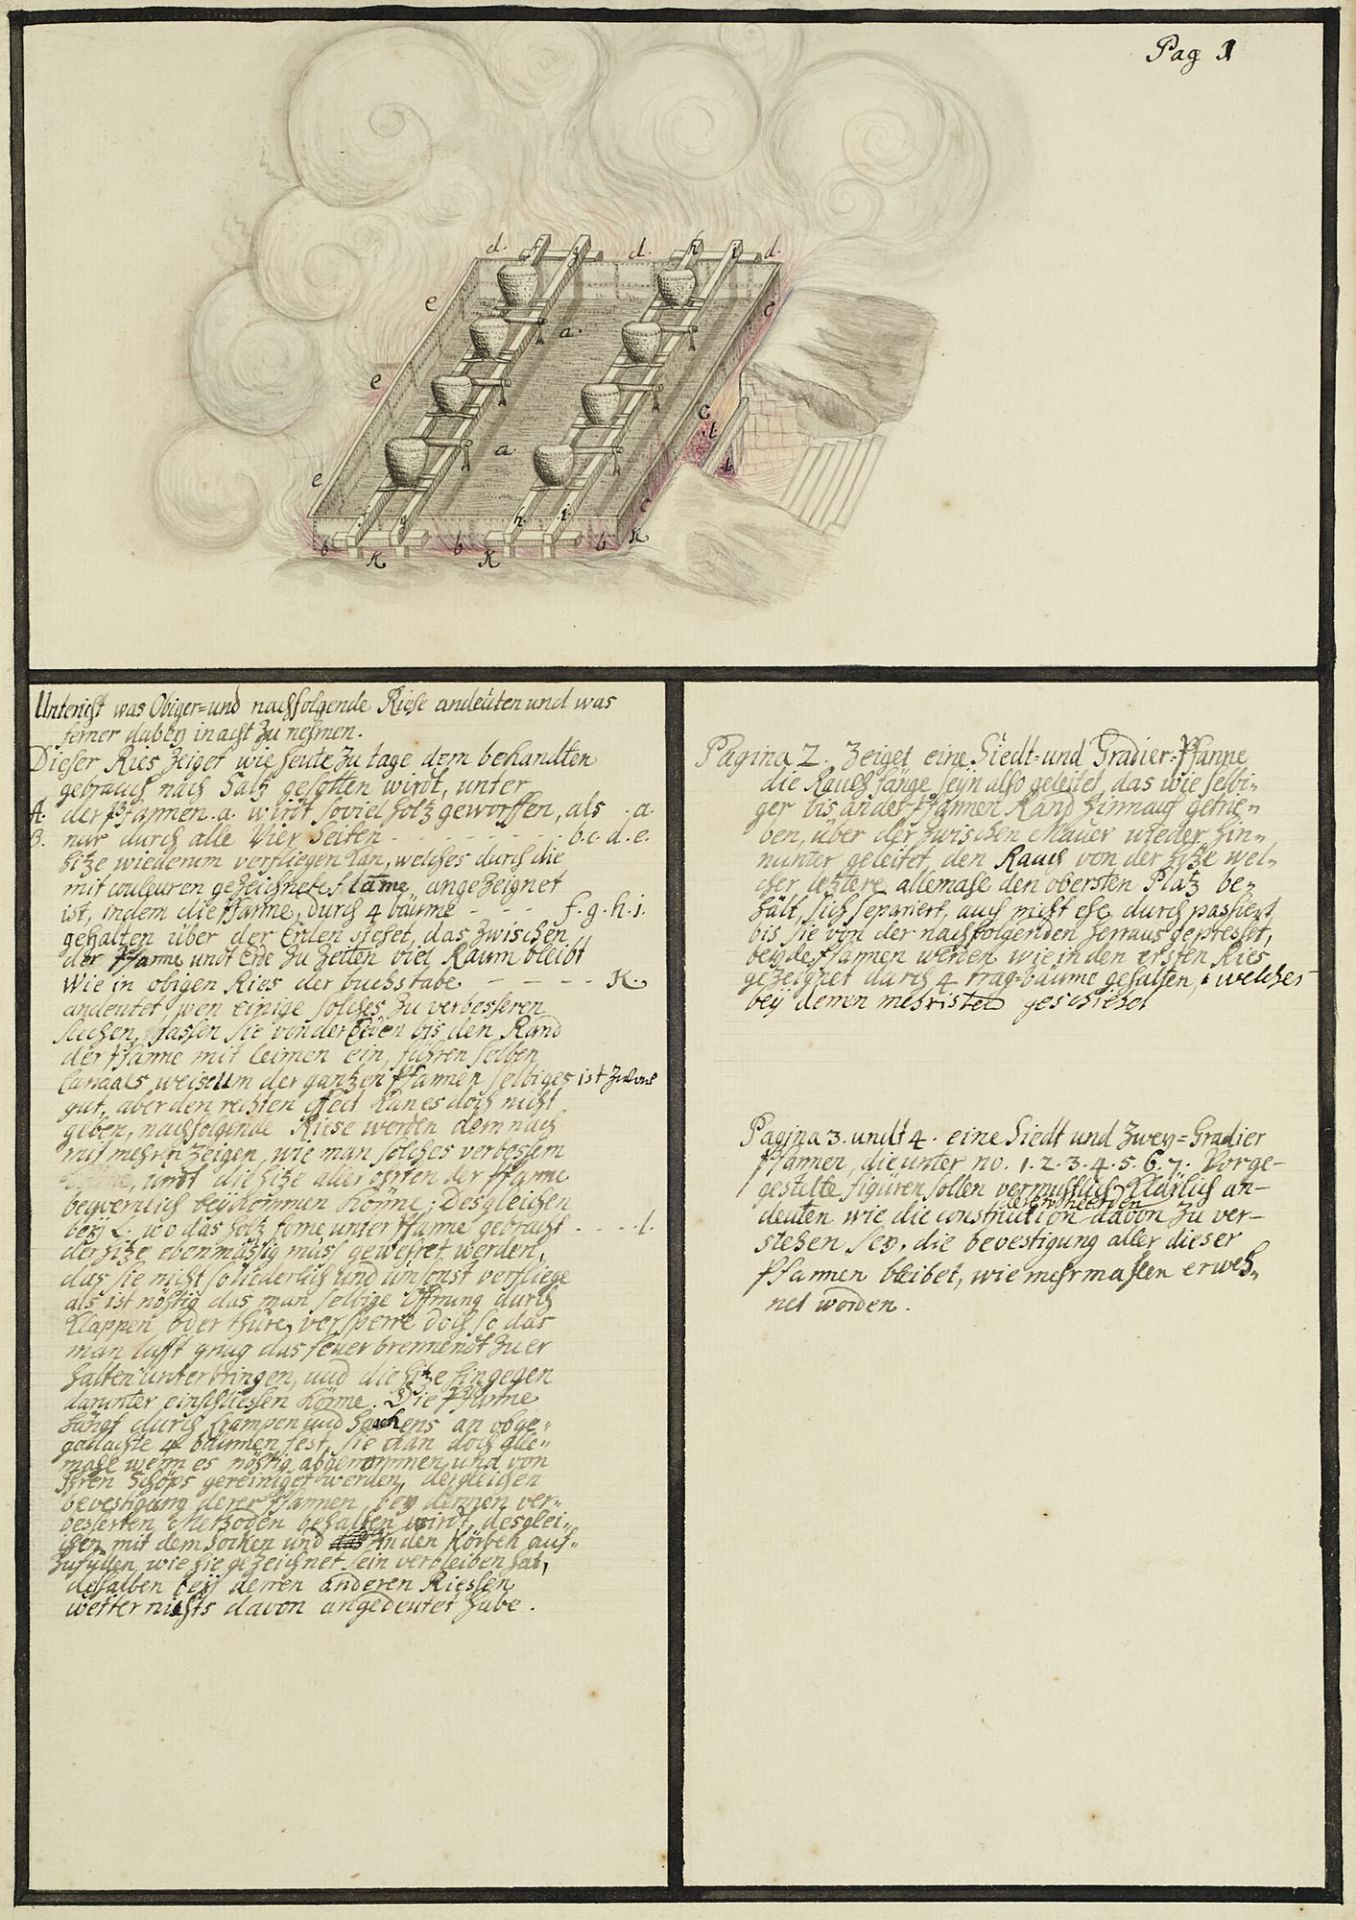 Pag 1
d. f g d. h i d.
e c
a.
e
c
l.
a l
e
c
g h. i.
b b b K
K K
Untericht was Obiger= und nachfolgende Riese andeuten und was
ferner dabey in acht zu nehmen.
Dieser Ries zeiget wie heute zu tage dem behandten
gebrauch nach Saltz gesotten wirdt, unter
A. der Pfannen .a. wirdt soviel holtz geworffen, als . a.
B. nur durch alle Vier Seiten - - - - - - b. c. d. e.
hitze wiederum verfliegen kan, welches durch die
mit couleuren gezeichnete flame angezeignet
ist, indem die Pfanne, durch 4 bäume - - - f. g. h. i.
gehalten über der Erden stehet, das zwischen
der Pfanne undt Erde zu zeiten viel Raum bleibt
Wie in obigen Ries der buchstabe - - - - K.
andeutet, wen einige solches zu verbesseren
suchen, fassen sie von der Erden bis den Rand
der Pfanne mit leimen ein, führen selben
Canaals weise um der gantzen Pfannen selbiges ist zwar
gut, aber den rechten effect kan es doch nicht
geben, nachfolgende Riese werden dem nach
mit mehrn zeigen, wie man solches verbessern
undt die hitze aller orten der Pfanne
beqvemlich beykommen könne; Desgleichen
bey L. wo das holtz forne unter Pfanne gebracht . . . . l.
der hitze ebenmäßig muss gewehret werden,
das sie nicht so liederlich und umsonst verfliege
als ist nöthig das man selbige Öffnung durch
Klappen oder thüre, versperre doch so das
man lufft gnug das feuer brennendt zu er
halten unterbringen, und die hitze hingegen
darunter einschliessen könne. Die Pfanne
hängt durch krampen und haackens an obge=
gedachte 4 bäumen fest, sie kan doch alle=
mahl wenn es nöthig abgenommen und von
ihren Schöps gereiniget werden, dergleichen
bevestigung derer Pfannen, bey dennen ver=
besserten Methoden behalten wirdt, desglei=
chen mit dem socken und in den Körben auf=
zufüllen, wie sie gezeichnet sein verbleiben hat,
deßalben bey denen anderen Riessen
weiter nichts davon angedeutet habe.
Pagina 2. Zeiget eine Siedt= und Gradier=Pfanne
die Rauchfänge seyn also geleitet, das wie selbi=
ger bis an der Pfannen Rand hinnauf getrie=
ben, über der zwischen Mauer wieder hin=
nunter geleitet, den Rauch von der hitze wel=
cher letztere allemahl den obersten Platz be=
hält, sich separiert, auch nicht ehe durch passiert,
bis sie von der nachfolgenden herraus gepresset,
beyde Pfannen werden wie in den ersten Ries
gezeignet durch 4 trag=bäume gehalten, welches
bey denen mehristen geschiehet
Pagina 3. undt 4. eine Siedt und zwey=Gradier
Pfannen, die unter no. 1. 2. 3. 4. 5. 6. 7. Vorge=
gestelte figuren sollen vermuthlich klärlich an=
deuten wie die construction davon zu ver=
stehen sey, die bevestigung aller dieser
Pfannen bleibet, wie mehrmahlen erweh=
net worden.